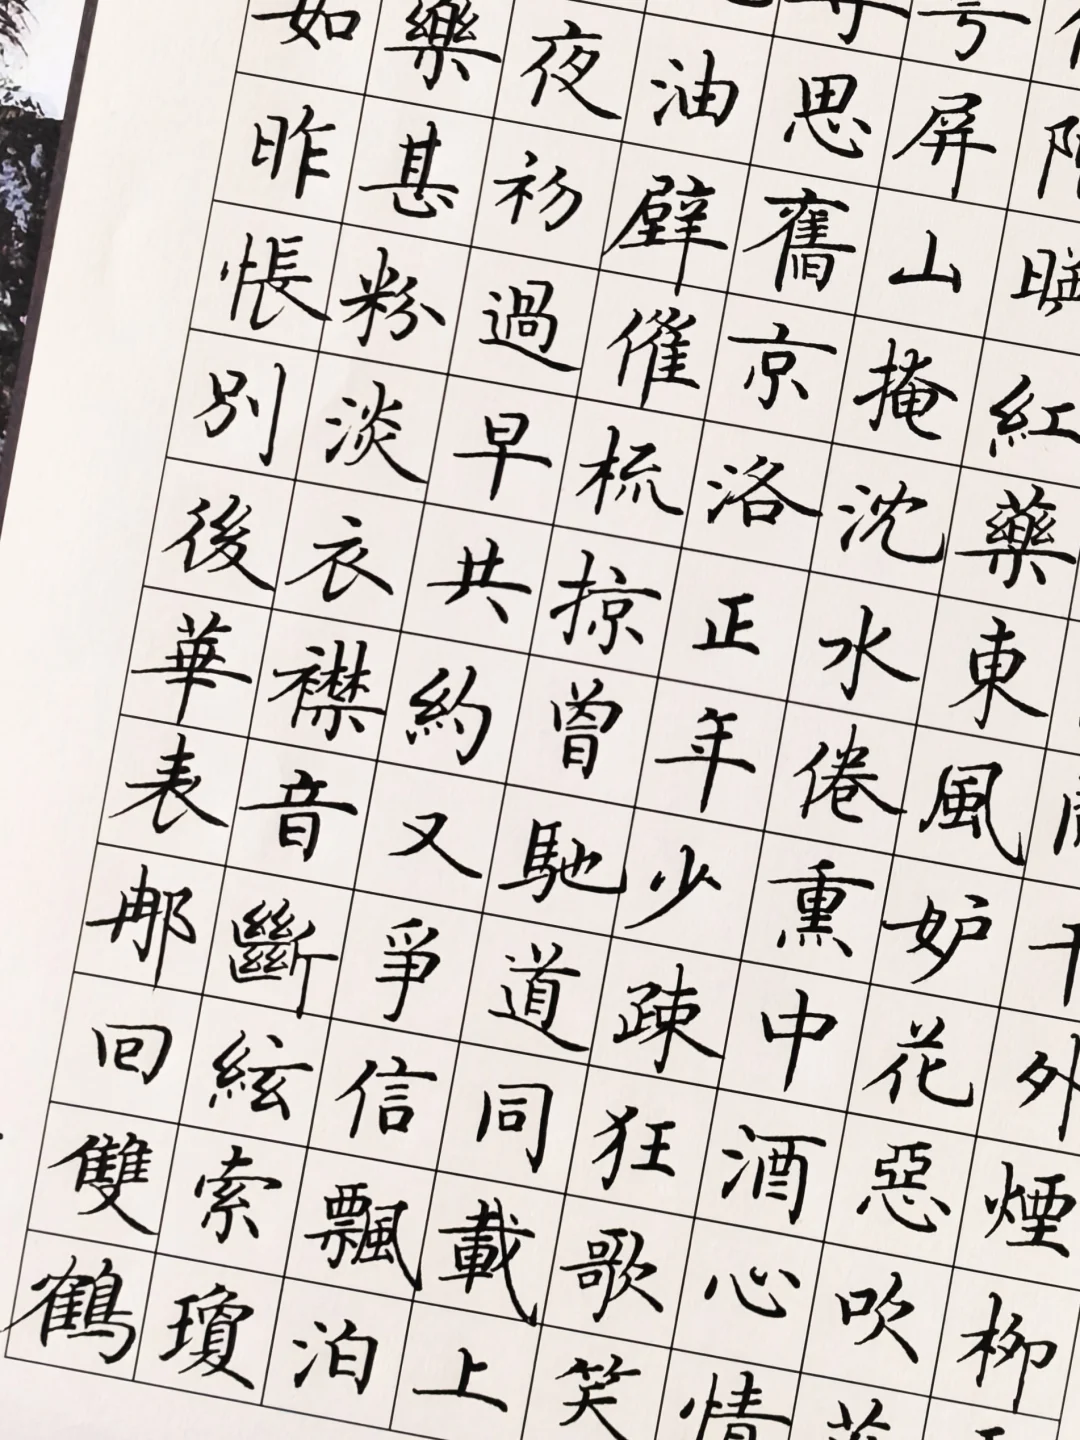 干外煙柳
暎紅藥東風妒花惡吹
屏山掩沈水倦熏中酒心情
思舊京洛正年少疎狂歌笑
油壁催梳掠曾馳道同載上
夜初過早共約又爭信飄泊
樂甚粉淡衣襟音斷絃索瓊
如昨悵別後華表那回雙鶴